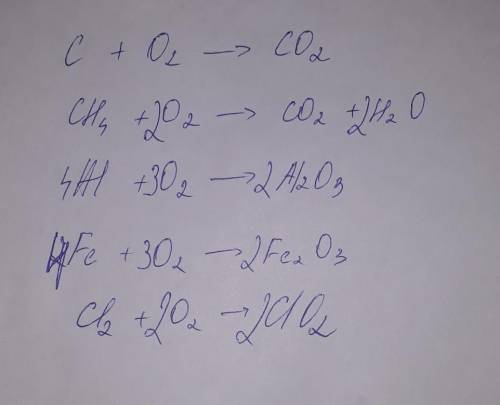 C + O₂ → CO₂
CH₄ + 2O₂ → CO₂ + 2H₂O
4Al + 3O₂ → 2Al₂O₃
4Fe + 3O₂ → 2Fe₂O₃
Cl₂ + 2O₂ → 2ClO₂